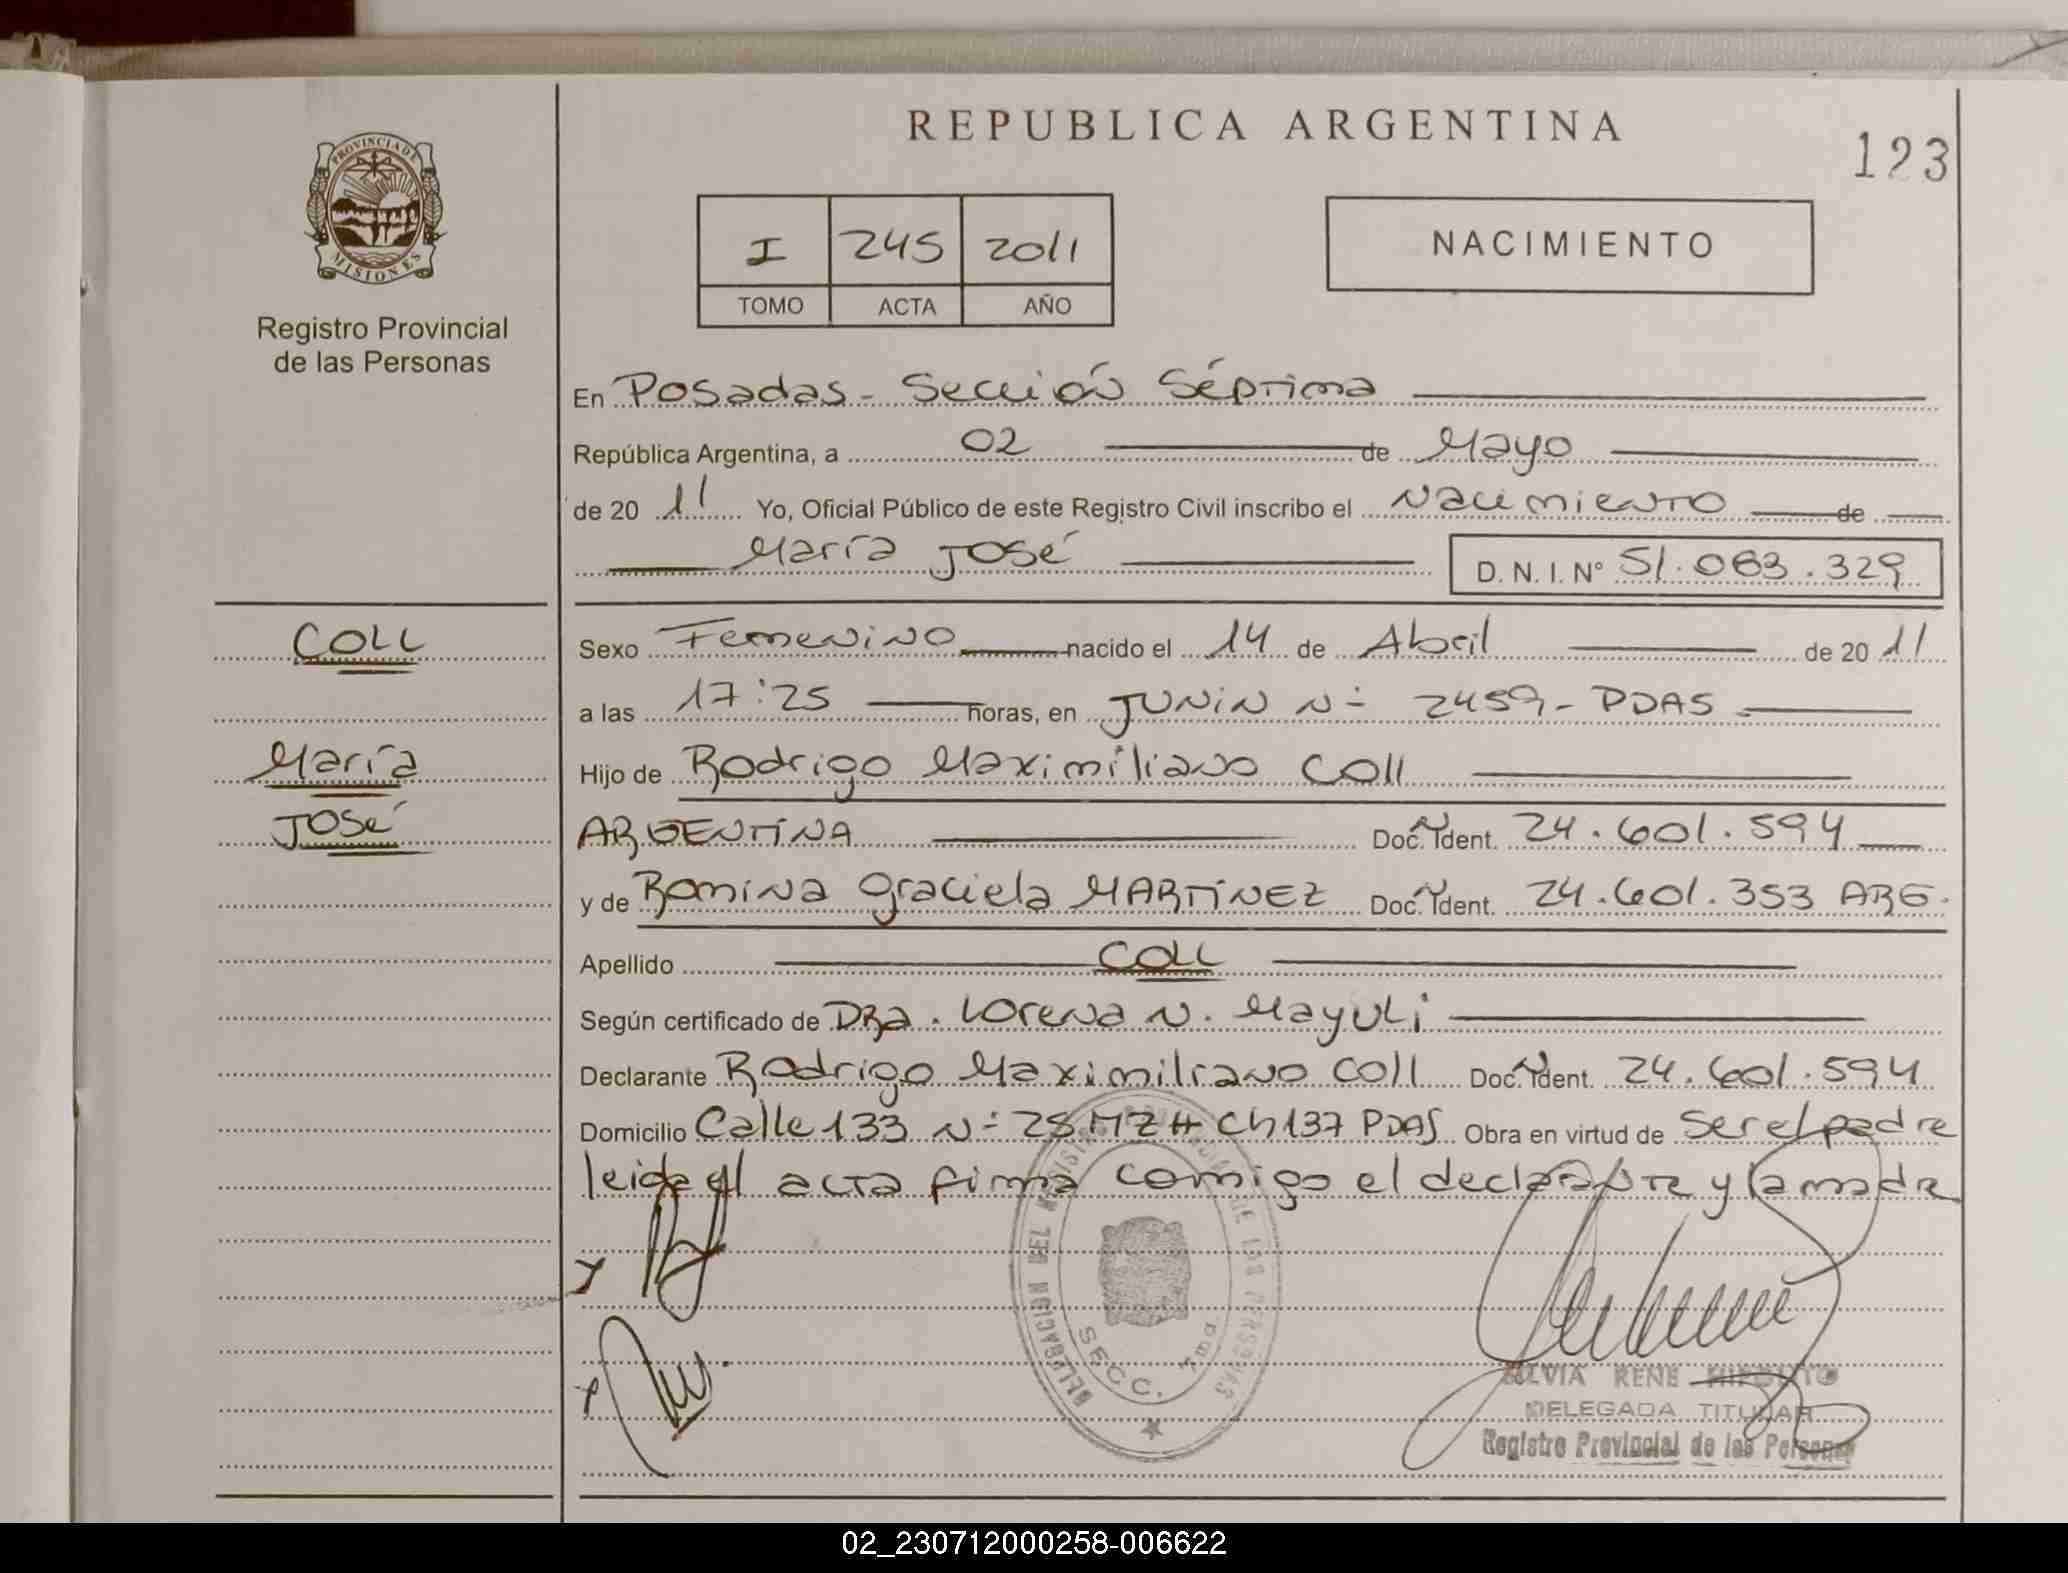 REPUBLICA ARGENTINA
123
PROVINCIA DE
MISIONES
Registro Provincial
de las Personas
I 245 2011
TOMO ACTA AÑO
NACIMIENTO
En Posadas - Sección Séptima
República Argentina, a 02 de Mayo
de 20 11 Yo, Oficial Público de este Registro Civil inscribo el Nacimiento de
María José D. N. I. N° 51.083.329
COLL
María
José
Sexo Femenino nacido el 14 de Abril de 20 11
a las 17:25 horas, en JUNIN N- 2459 - PDAS
Hijo de Rodrigo Maximiliano Coll
ARGENTINA Doc. Ident. 24.601.594
y de Romina Graciela MARTINEZ Doc. Ident. 24.601.353 ARG.
Apellido COLL
Según certificado de DRa. Lorena N. Mayuli
Declarante Rodrigo Maximiliano Coll Doc. Ident. 24.601.594
Domicilio Calle 133 N- 25 MZ H Ch 137 PDAS Obra en virtud de Ser el padre
leida el acta firma comigo el declarante y la madre
DELEGACION DEL DE LAS PERSONAS
SECC. 7ma
SILVIA RENE HIPOLITO
DELEGADA TITULAR
Registro Provincial de las Personas
02_230712000258-006622